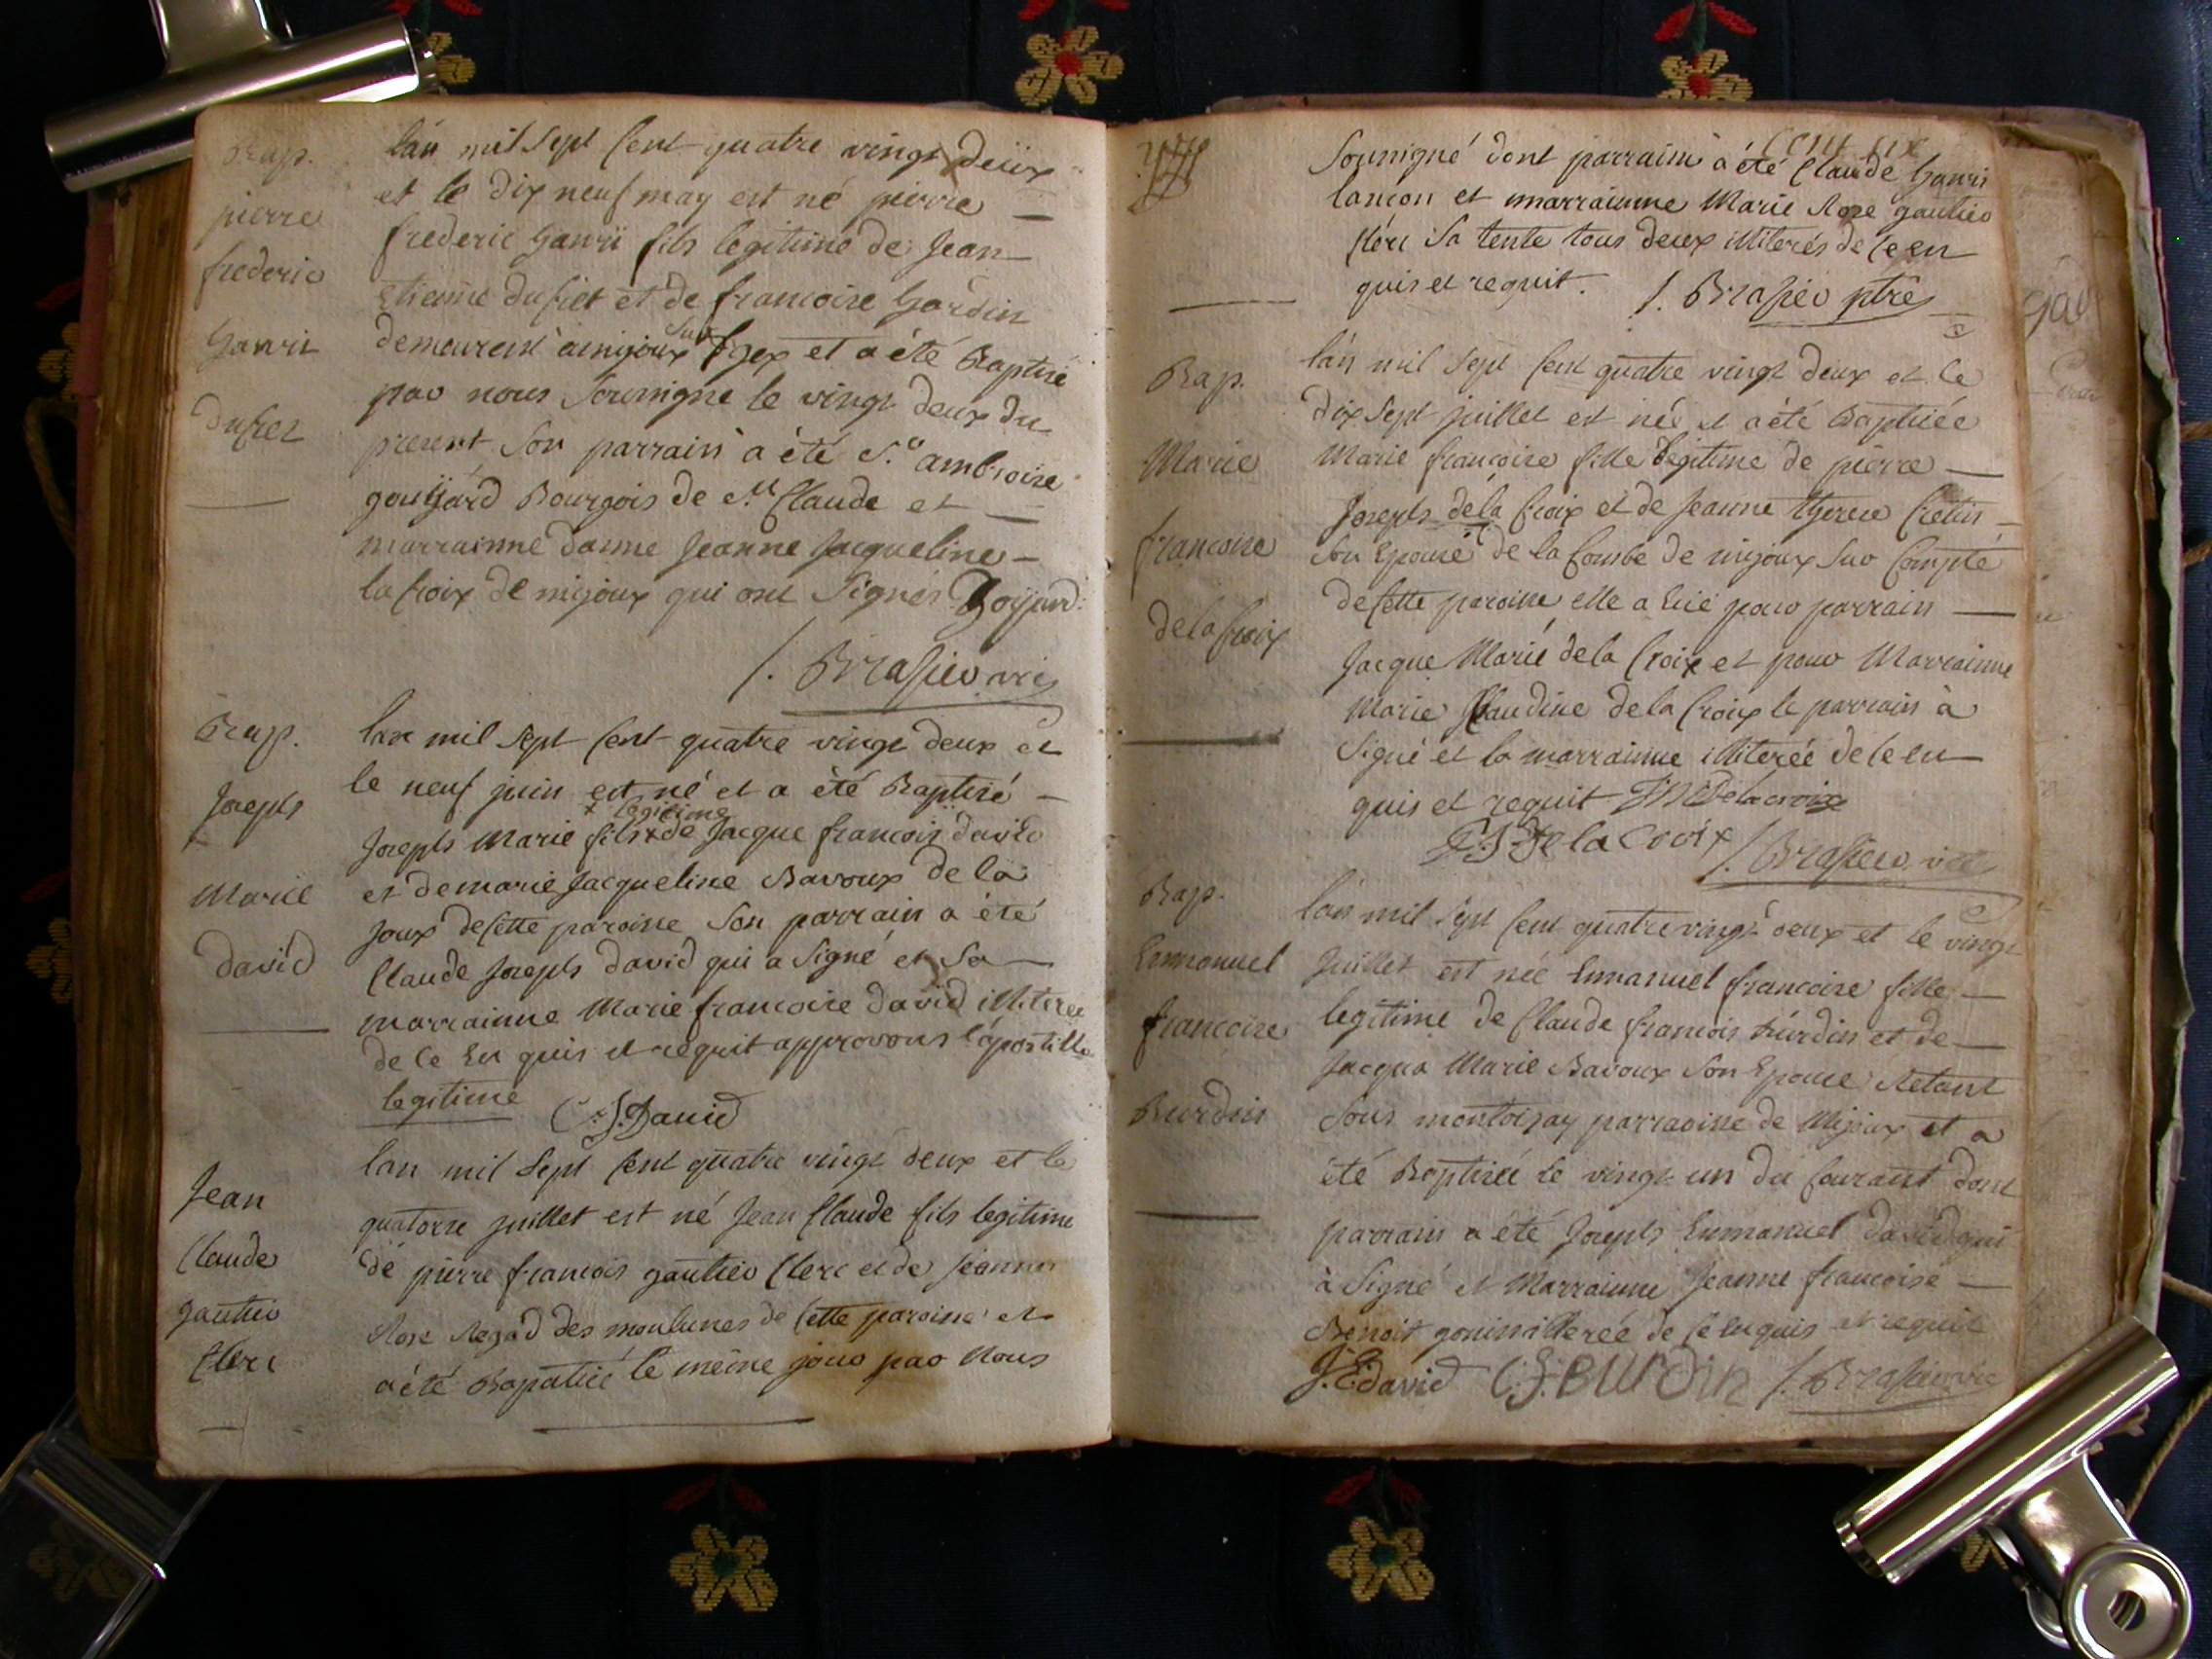 Bap.
pierre
frederic
hanri
dufiet
lan mil sept Cent quatre vingt deüx
et le dix neuf may est né pierre
frederic hanri fils legitime de Jean
Etienne dufiet et de francoise Gordin
demeurent amijoux sur Gex et a été Baptisé
par nous Sousigne le vingt deux du
present Son parrain a été S.r ambroise
Bourgois de St Claude et
marrainne damme Jeanne Jacqueline
la Croix de mijoux qui ont Signés
f. Brasier vic
Bap.
Joseph
Marie
david
lan mil sept Cent quatre vingt deux et
le neuf juin est né et a été Baptisé
x legitime
Joseph Marie fils x de Jacque francois david
et de marie Jacqueline Bavoux de la
Joux de Cette paroisse Son parrain a été
Claude Joseph david qui a Signé et Sa
marrainne Marie francoise david illiterée
de Ce En quis et requit approvons l'apostille
legitime
C:J:David
Jean
Claude
gautier
Clerc
lan mil Sept Cent quatre vingt deux et le
quatorse juillet est né Jean Claude fils legitime
de pierre francois gautier Clerc et de jeanne
Rose Regad des moulunes de Cette paroisse et
a été Bapatisé le même jour par Nous
Cent six
Sousigné dont parrain a été Claude hanri
lancon et marrainne Marie Rose gautier
Clerc Sa tente tous deux illiterés de Ce en
quis et requit. f. Brasier ptre
Bap.
Marie
francoise
de la Croix
lan mil Sept Cent quatre vingt deux et le
dix Sept juillet est née et a été Baptisée
Marie francoise fille legitime de pierre
Joseph de la Croix et de Jeanne therese Cretin
Son Epouse de la Combe de mijoux Sur Compte
de Cette paroisse elle a Eue pour parrain
Jacque Marie de la Croix et pour Marrainne
Marie Claudine de la Croix le parrain à
Signé et la marrainne illiterée de Ce en
quis et requit JM Delacroix
P:J:De la Croix f. Brasier vic
Bap.
Emmanuel
francoise
Burdin
lan mil Sept Cent quatre vingt deux et le vingt
Juillet est née Emmanuel francoise fille
legitime de Claude francois Burdin et de
Jacqua Marie Bavoux Son Epouse Retant
Sous montoisay parraoisse de Mijoux et a
été Baptisée le vingt un du Courant dont
parrain a été Joseph Emmanuel david qui
à Signé et Marrainne Jeanne francoise
Benoit gouin illerée de Ce Enquis et requit
J:E:david C:F:BURDIN f. Brasier vic